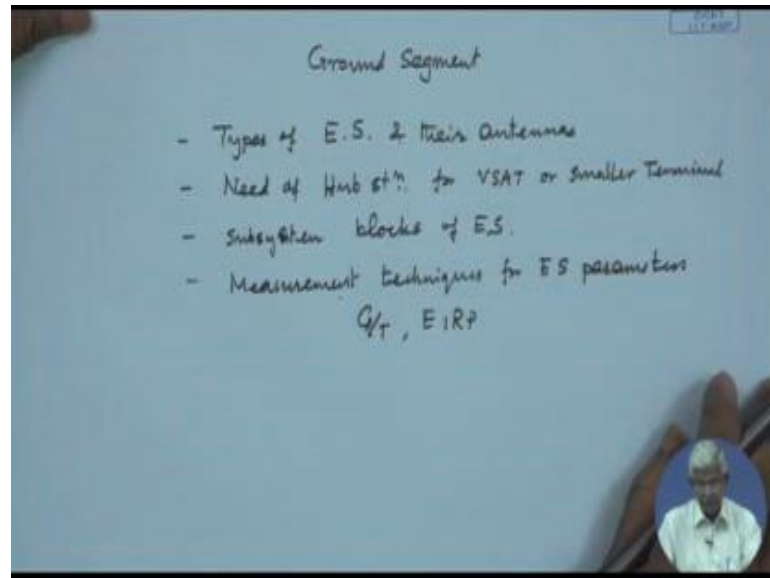 Ground Segment
- Types of E.S. & their antennas
- Need of Hub stn. for VSAT or smaller Terminal
- Subsystem blocks of E.S.
- Measurement techniques for ES parameters
G/T, EIRP